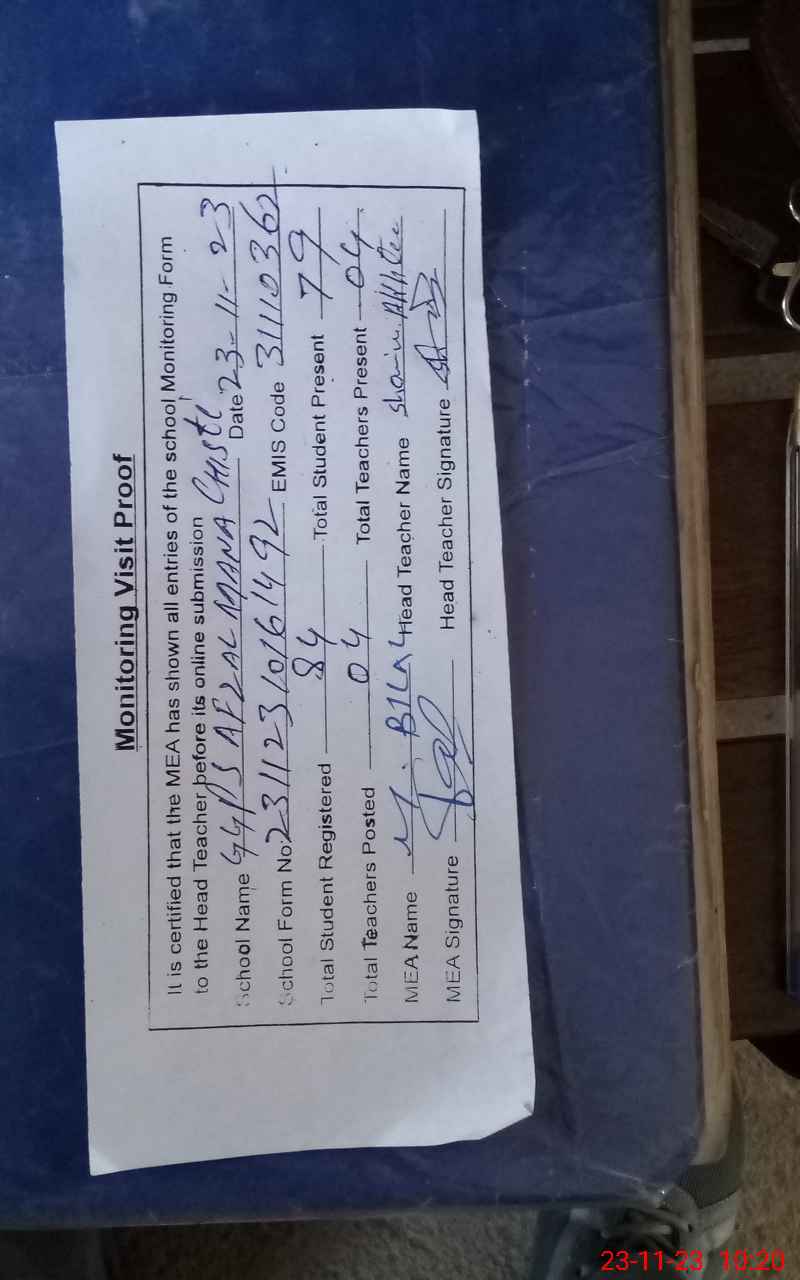 Monitoring Visit Proof
It is certified that the MEA has shown all entries of the school Monitoring Form
to the Head Teacher before its online submission
School Name GGPS AFZAL MANA CHISTI Date 23-11-23
School Form No: 23112310161492 EMIS Code 31110362
Total Student Registered 84 Total Student Present 79
Total Teachers Posted 04 Total Teachers Present 04
MEA Name M. BILAL Head Teacher Name
MEA Signature Head Teacher Signature
23-11-23 10:20